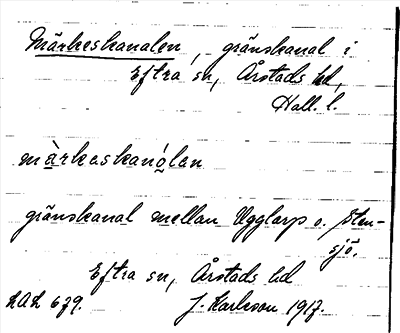 Märkeskanalen, gränskanal i
Eftra sn, Årstads hd,
Hall. l.
màrkeskanólan
gränskanal mellan Ugglarp o. Sten-
sjö.
Eftra sn, Årstads hd
LAL 679. J. Karlsson 1917.